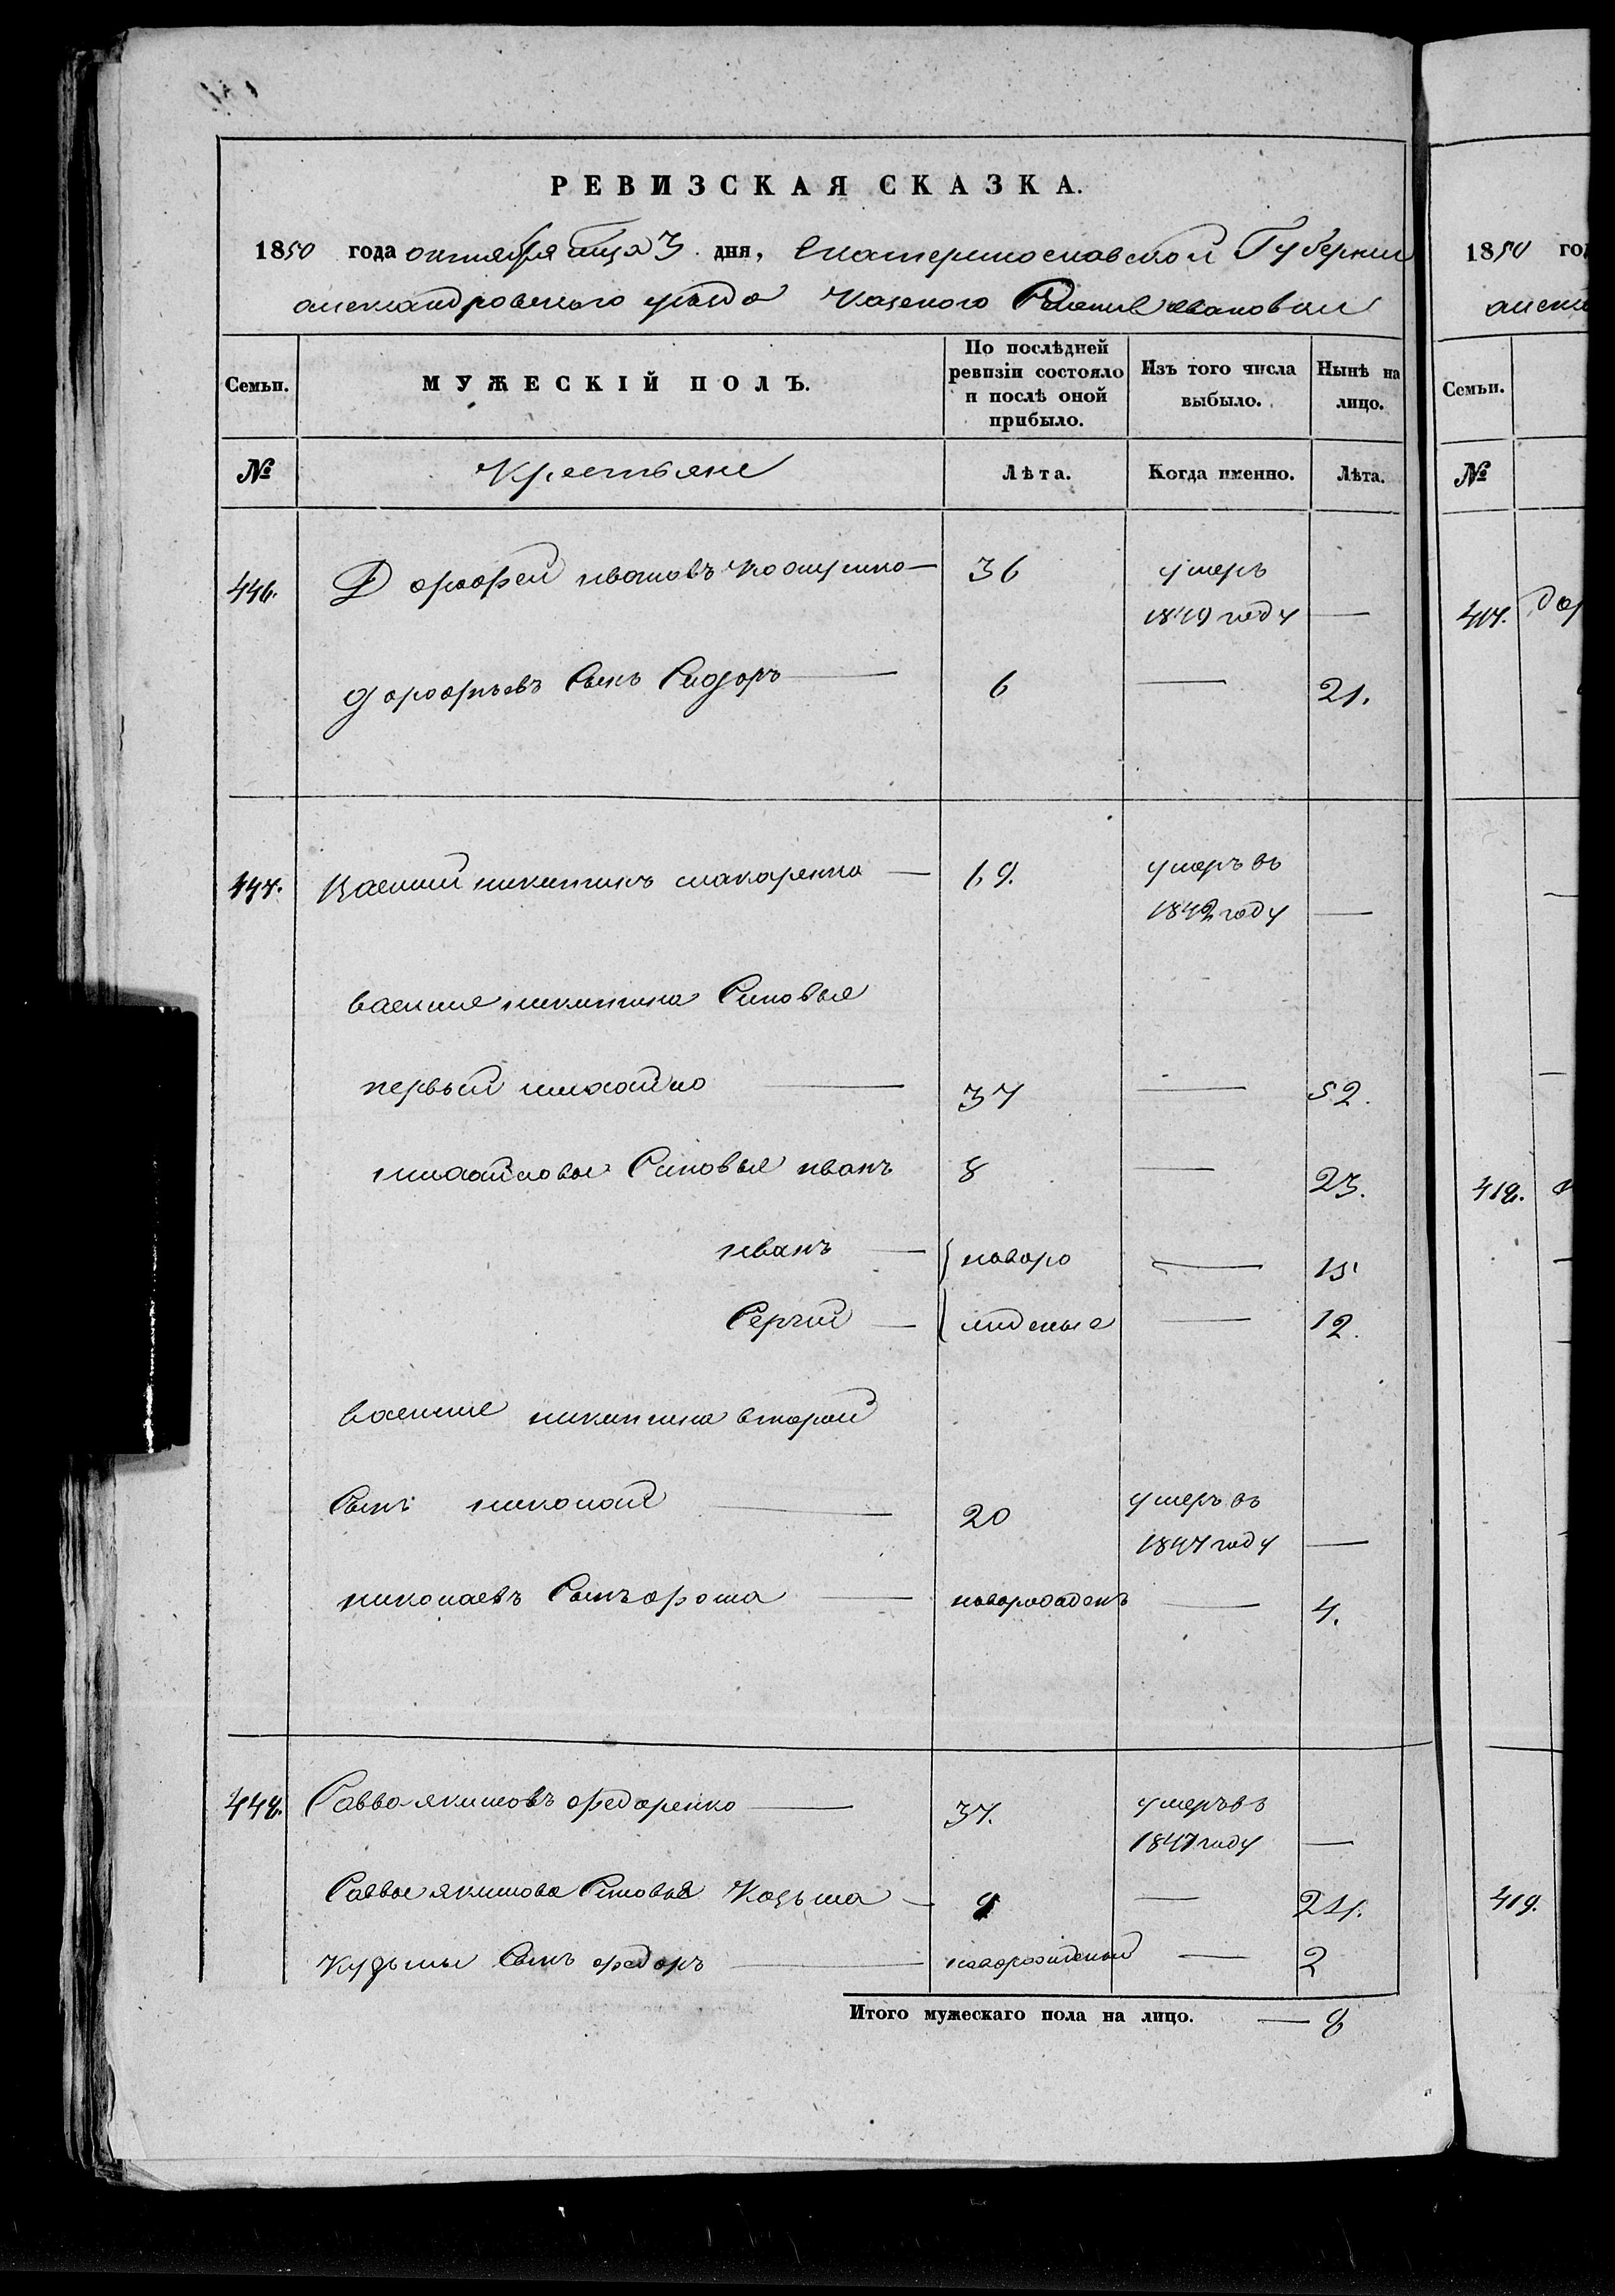 РЕВИЗСКАЯ СКАЗКА.
1850 года октября мца 3 дня, Екатеринославской Губернии
александровского уезда казеного Селения ивановки
Семьи.
МУЖЕСКІЙ ПОЛЪ.
По послѣдней ревизіи состояло и послѣ оной прибыло.
Изъ того числа выбыло.
Нынѣ на лицо.
№
Крестьяне
Лѣта.
Когда именно.
Лѣта.
446. Дорофей ивановъ — 36 умеръ
1849 году —
дорофѣевъ Сынъ Сидоръ — 6 — 21.
447. Василий никитинъ макаренко — 69. умеръ въ
1842 году —
василия никитина Синовья
первый михайло — 37 — 52.
михайловы Синовья иванъ 8 — 23.
иванъ — новоро — 15
Сергий — жденые — 12.
василия никитина второй
Сынъ николай — 20 умеръ въ
1847 году —
николаевъ Сынъ фома — — 4.
448. Савва якимовъ федоренко — 37. умеръ въ
1847 году —
Саввы якимова Синовья Козьма — 9 — 24.
кузьмы Сынъ федоръ — новорожденый — 2
Итого мужескаго пола на лицо. — 8
1850 год
алекс
Семьи.
№
417. дор
418.
419.